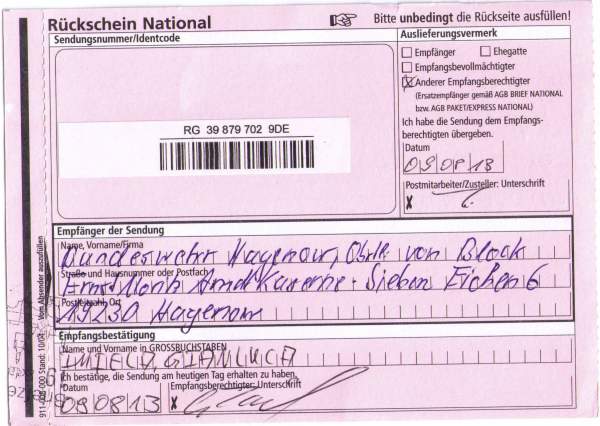 Rückschein National
Bitte unbedingt die Rückseite ausfüllen!
Sendungsnummer/Identcode
RG 39 879 702 9DE
Auslieferungsvermerk
Empfänger Ehegatte
Empfangsbevollmächtigter
Anderer Empfangsberechtigter
(Ersatzempfänger gemäß AGB BRIEF NATIONAL
bzw. AGB PAKET/EXPRESS NATIONAL)
Ich habe die Sendung dem Empfangs-
berechtigten übergeben.
Datum
090813
Postmitarbeiter/Zusteller: Unterschrift
X
Empfänger der Sendung
Name, Vorname/Firma
Bundeswehr Hagenow, Obrlt. von Block
Straße und Hausnummer oder Postfach
Ernst Moritz Arndt Kaserne - Sieben Eichen 6
Postleitzahl Ort
19230 Hagenow
Empfangsbestätigung
Name und Vorname in GROSSBUCHSTABEN
GIANLUCA
Ich bestätige, die Sendung am heutigen Tag erhalten zu haben.
Datum Empfangsberechtigter: Unterschrift
090813 X
Vom Absender auszufüllen